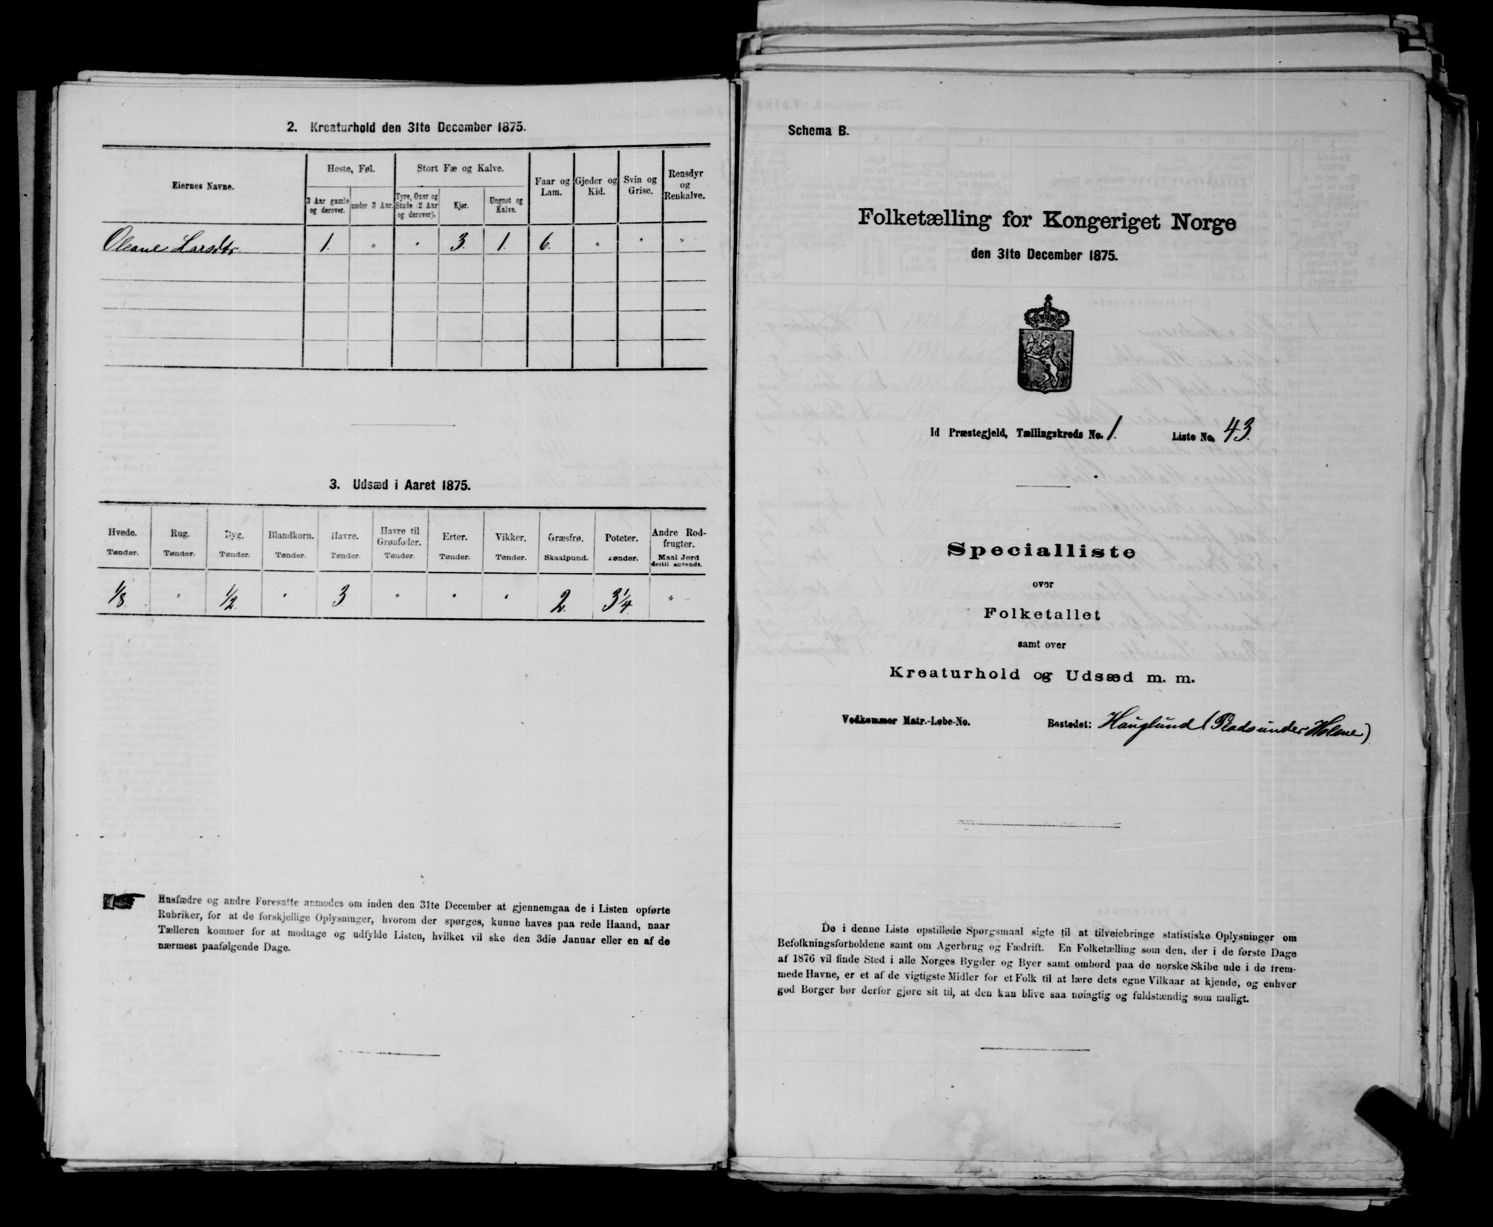 2. Kreaturhold den 31te December 1875.
Eiernes Navne.
Heste, Føl.
Stort Fæ og Kalve.
Faar og Lam.
Gjeder og Kid.
Svin og Grise.
Rensdyr og Renkalve.
3 Aar gamle og derover.
under 3 Aar.
Tyre, Oxer og Stude (2 Aar og derover).
Kjør.
Ungnøt og Kalve.
Oleane Larsdtr. 1. " " 3. 1. 6. " " "
3. Udsæd i Aaret 1875.
Hvede. Rug. Byg. Blandkorn. Havre. Havre til Grønfoder. Erter. Vikker. Græsfrø. Poteter. Andre Rodfrugter.
Tønder. Tønder. Tønder. Tønder. Tønder. Tønder. Tønder. Tønder. Skaalpund. Tønder. Maal Jord dertil anvendt.
1/8 " 1/2 " 3 " " " 2 3 1/4 "
Husfædre og andre Foresatte anmodes om inden den 31te December at gjennemgaa de i Listen opførte
Rubriker, for at de forskjellige Oplysninger, hvorom der spørges, kunne haves paa rede Haand, naar
Tælleren kommer for at modtage og udfylde Listen, hvilket vil ske den 3die Januar eller en af de
nærmest paafølgende Dage.
Schema B.
Folketælling for Kongeriget Norge
den 31te December 1875.
Id Præstegjeld, Tællingskreds No. 1. Liste No. 43.
Specialliste
over
Folketallet
samt over
Kreaturhold og Udsæd m. m.
Vedkommer Matr.-Løbe-No. Bostedet: Hauglund (Plads under Holene)
De i denne Liste opstillede Spørgsmaal sigte til at tilveiebringe statistiske Oplysninger om
Befolkningsforholdene samt om Agerbrug og Fædrift. En Folketælling som den, der i de første Dage
af 1876 vil finde Sted i alle Norges Bygder og Byer samt ombord paa de norske Skibe ude i de frem-
mede Havne, er et af de vigtigste Midler for et Folk til at lære dets egne Vilkaar at kjende, og enhver
god Borger bør derfor gjøre sit til, at den kan blive saa nøiagtig og fuldstændig som muligt.